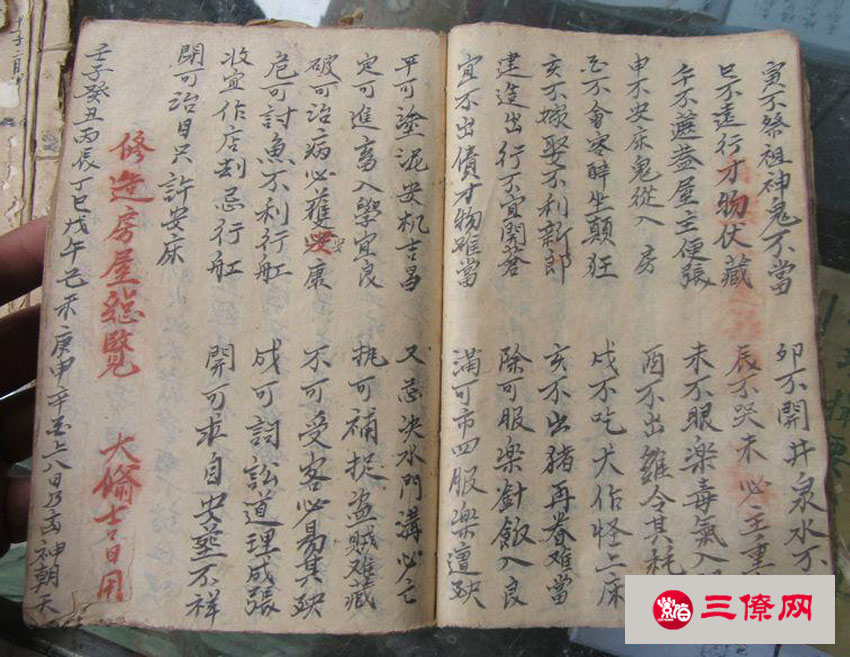 寅不祭祖神鬼不當 卯不開井泉水不
巳不遠行才物伏藏 辰不哭未必主重
午不蓋屋主便張 未不服樂毒氣入
申不安床鬼從入房 酉不出雞令其耗
不會客醉坐顛狂 戌不吃犬作怪上床
亥不嫁娶不利新郎 亥不出猪再眷难當
建造出行不宜開倉 除可服樂針飯入良
宜不出債才物难當 滿可市四服樂遭殃
平可塗泥安机吉昌 又忌决水門溝必亡
定可進畜入學宜良 执可補捉盗贼难藏
破可治病必獲安康 不可受客必易其殃
危可討魚不利行舡 成可詞訟道理成張
收宜作店刦忌行舡 開可求自安塟不祥
開可治目只許安床
修造房屋总覧 大偷吉日用
壬子癸丑丙辰丁巳戊午己未庚申辛酉上八日乃玄神朝天
三僚网